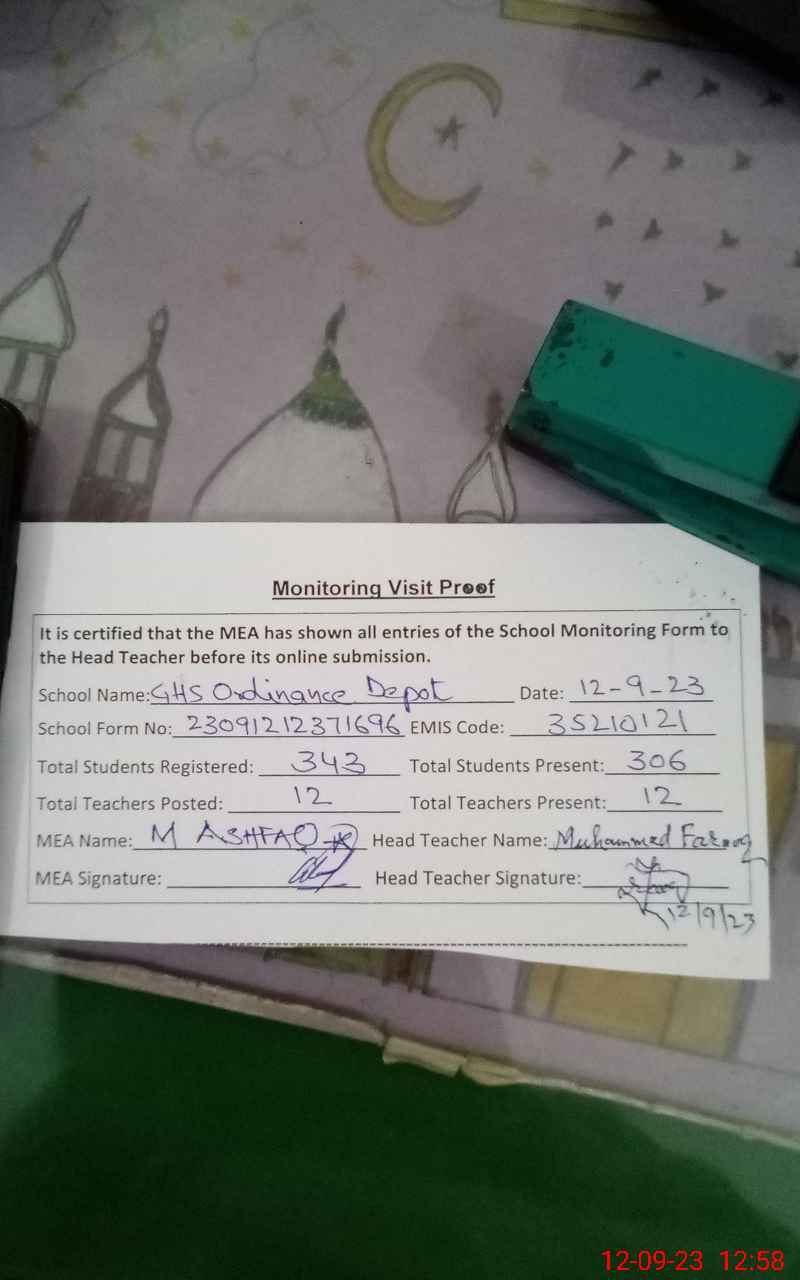 Monitoring Visit Proof
It is certified that the MEA has shown all entries of the School Monitoring Form to
the Head Teacher before its online submission.
School Name: GHS Ordinance Depot Date: 12-9-23
School Form No: 23091212371696 EMIS Code: 35210121
Total Students Registered: 343 Total Students Present: 306
Total Teachers Posted: 12 Total Teachers Present: 12
MEA Name: M ASHFAQ Head Teacher Name: Muhammad Farooq
MEA Signature: Head Teacher Signature:
12/9/23
12-09-23 12:58